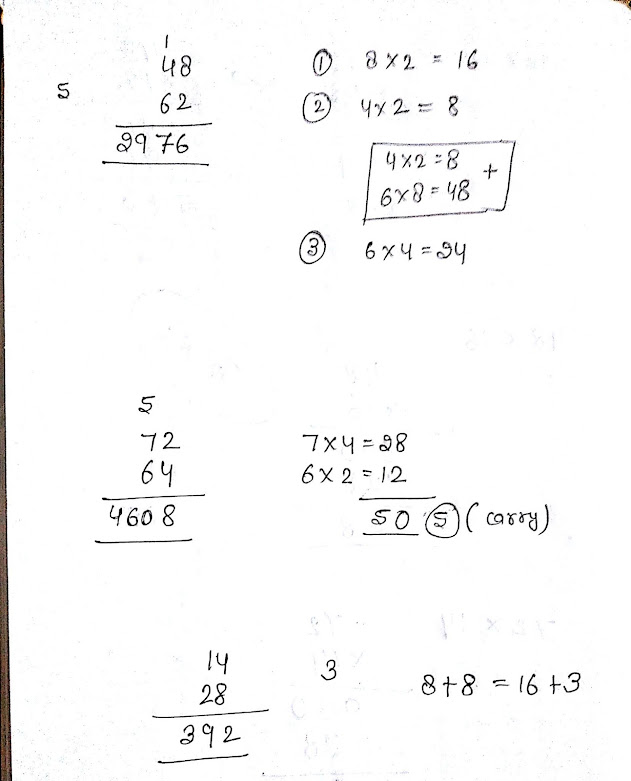 1
48
5
62
2976
① 8×2 = 16
② 4×2 = 8
4×2=8
+
6×8=48
③ 6×4=24
5
72
64
4608
7×4=28
6×2=12
50 ⑤ (carry)
14
28
392
3
8+8 = 16+3